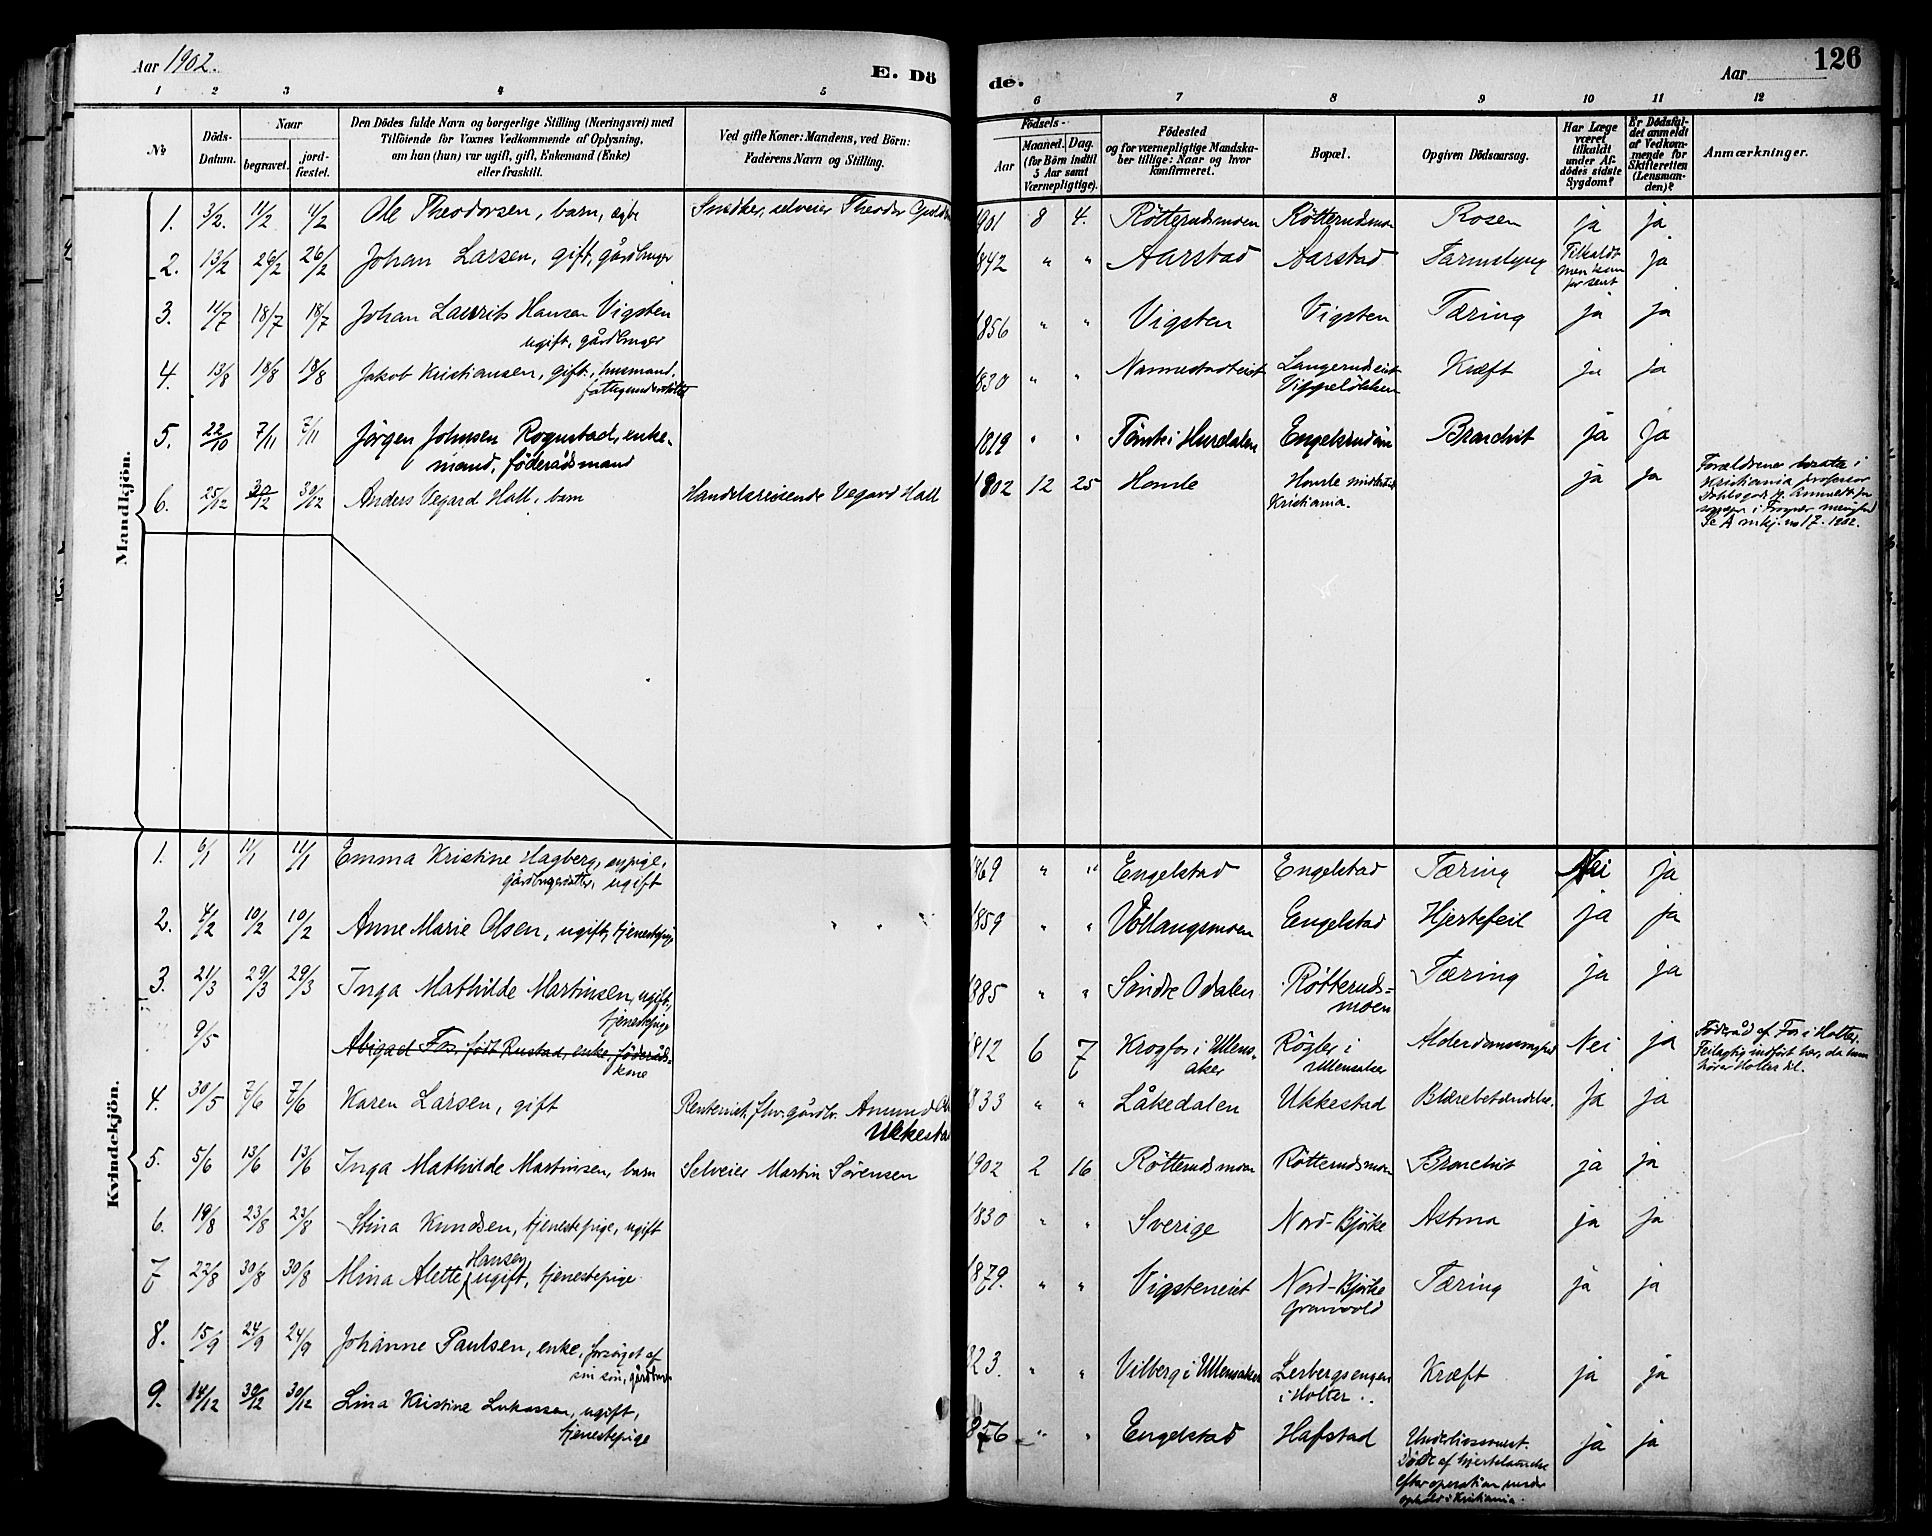 Aar 1902.
E. Dö
de.
Aar
126
1 2 3 4 5 6 7 8 9 10 11 12
No
Döds-
Datum.
Naar
begravet.
jord-
fæstet.
Den Dödes fulde Navn og borgerlige Stilling (Næringsvei) med
Tilföiende for Voxnes Vedkommende af Oplysning,
om han (hun) var ugift, gift, Enkemand (Enke)
eller fraskilt.
Ved gifte Koner: Mandens, ved Börn:
Faderens Navn og Stilling.
Födsels-
Aar
Maaned.
Dag.
(for Börn indtil
5 Aar samt
Værnepligtige).
Födested
og for værnepligtige Mandska-
ber tillige: Naar og hvor
konfirmeret.
Bopæl.
Opgiven Dödsaarsag.
Har Læge
været
tilkaldt
under Af-
dödes sidste
Sygdom?
Er Dödsfal-
det anmeldt
af Vedkom-
mende for
Skifteretten
(Lensman-
den)?
Anmærkninger.
Mandkjön.
1. 3/2. 11/2 11/2 Ole Theodorsen, barn, ægte Snedker, selveier Theodor 1901 8 4. Rötterudsmoen Rötterudsmoen Rosen ja ja
2. 13/2 26/2 26/2 Johan Larsen, gift, gårdbruger 1842 " " Aarstad Aarstad Tarmslyng Tilkaldt ja
men kom
for sent
3. 11/7 18/7 18/7 Johan Laurits Hansen Vigsten 1856 " " Vigsten Vigsten Tæring ja ja
ugift, gårdbruger
4. 13/8 18/8 18/8 Jakob Kristiansen, gift, husmand, 1830 " " Nannestadeiet Langerudseiet Kræft ja ja
fattigunderstöttet Vippelökken
5. 22/10 7/11 7/11 Jørgen Johnsen Rognstad, enke- 1819 " " Tömte i Hurdalen Bronchit ja ja
mand, föderådsmand
6. 25/12 30/12 30/12 Anders Vegard Hall, barn Handelsreisende Vegard Hall 1902 12 25 Homle Homle ja ja
Kristiania.
Forældrene
Kristiania professor
Kvindekjön.
1. 6/1 11/1 11/1 Emma Kristine Hagberg, sypige, 1869 " " Engelstad Engelstad Tæring Nei ja
gårdbrugerdatter, ugift
2. 4/2 10/2 10/2 Anne Marie Olsen, ugift, tjenestepige " " 1859 " " Vollaugsmoen Engelstad Hjertefeil ja ja
3. 21/3 29/3 29/3 Inga Mathilde Martinsen, ugift, 1885 " " Söndre Odalen Røtteruds- Tæring ja ja
tjenestepige moen
9/5 Abigael Fos, født Rustad, enke, föderåds- 1812 6 7 Krogfos i Ullens- Røgler i Alderdomssvaghed Nei ja Föderåd af Fos i Holter.
kone aker Ullensaker Feilagtig indført her, da hun
hører Holter til.
4. 30/5 7/6 7/6 Karen Larsen, gift Rentenist, fhv. gårdbr. Amund 1833 " " Låkedalen Ukkestad Blærebetændelse. Ja ja
Ukkestad
5. 5/6 13/6 13/6 Inga Mathilde Martinsen, barn Selveier Martin Sörensen 1902 2 16 Røtterudsmoen Røtterudsmoen Bronchit ja ja
6. 19/8 23/8 23/8 Stina Knudsen, tjenestepige, ugift 1830 " " Sverige Nord-Bjørke Astma ja ja
7 22/8 30/8 30/8 Mina Alette Hansen, ugift, tjenestepige 1879. " " Vigsteneiet Nord-Bjørke Tæring ja ja
8. 15/9 24/9 24/9 Johanne Paulsen, enke, forsörget af 1823. " " Vilberg i Ullensaker Lerbergsengen Kræft ja ja
sin sön, i Holter.
9. 14/12 30/12 30/12 Lina Kristine Lukassen, ugift, 1856 " " Engelstad Hafstad Underlivssvulst. ja ja
tjenestepige
Döde af hjertelammelse
efter operation under
ophold i Kristiania.